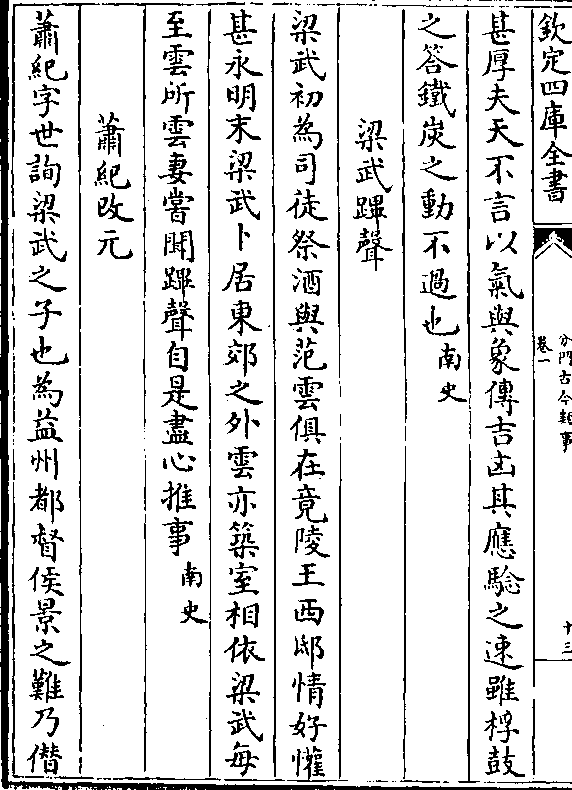 欽定四庫全書
分門古今類事
卷一
十三
甚厚夫天不言以氣與象傳吉凶其應驗之速雖桴鼓
之答鐵炭之動不過也南史
梁武蹕聲
梁武初為司徒祭酒與范雲俱在竟陵王西邸情好懽
甚永明末梁武卜居東郊之外雲亦築室相依梁武每
至雲所雲妻嘗聞蹕聲自是盡心推事南史
蕭紀改元
蕭紀字世詢梁武之子也為益州都督侯景之難乃僭